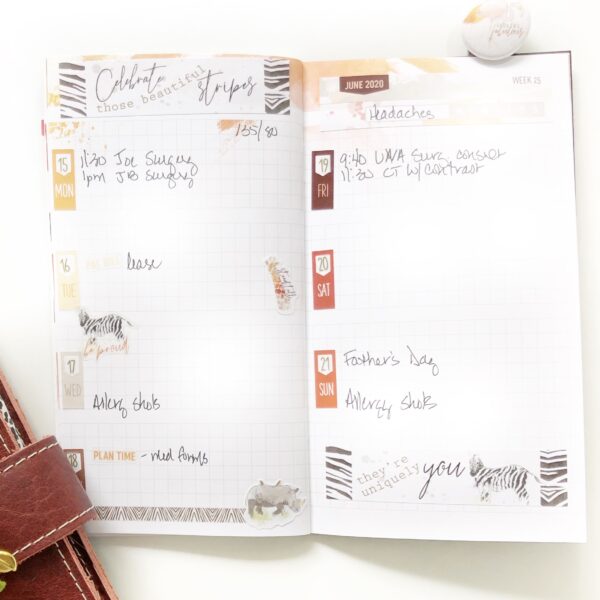 Celebrate
those beautiful stripes
135/80
15
MON
11:30 Joe Surgery
1pm JB Surgery
16
TUE
lease
be proud
17
WED
Allergy Shots
18
PLAN TIME - med forms
JUNE 2020
WEEK 25
Headaches
19
FRI
9:40 UVA Surg. consult
11:30 CT w/contrast
20
SAT
21
SUN
Father's Day
Allergy Shots
they're
uniquely you